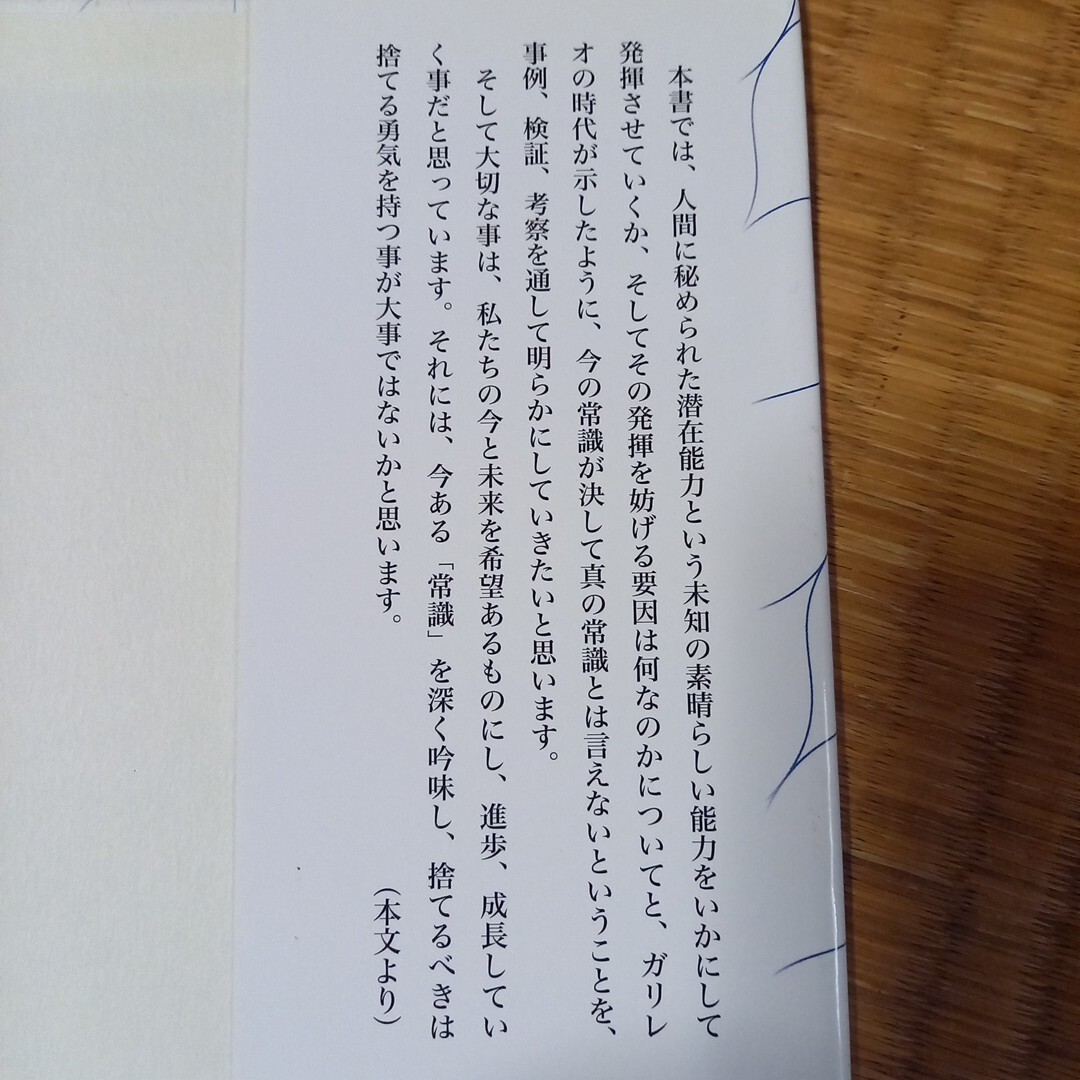 本書では、人間に秘められた潜在能力という未知の素晴らしい能力をいかにして
発揮させていくか、そしてその発揮を妨げる要因は何なのかについてと、ガリレ
オの時代が示したように、今の常識が決して真の常識とは言えないということを、
事例、検証、考察を通して明らかにしていきたいと思います。
そして大切な事は、私たちの今と未来を希望あるものにし、進歩、成長してい
く事だと思っています。それには、今ある「常識」を深く吟味し、捨てるべきは
捨てる勇気を持つ事が大事ではないかと思います。
（本文より）